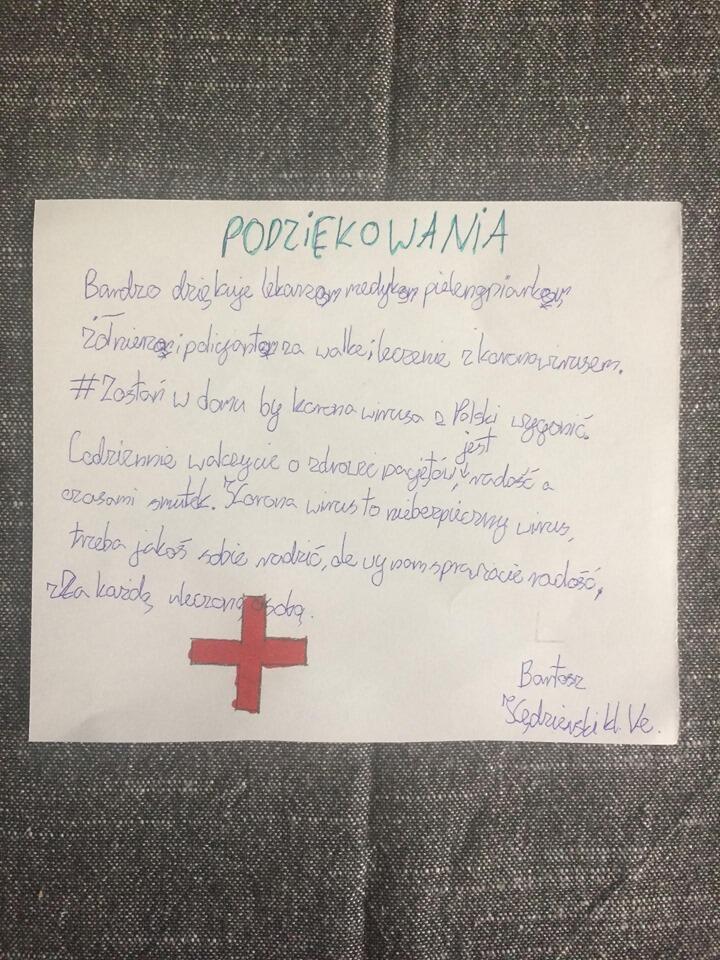 PODZIĘKOWANIA
Bardzo dziękuje lekarzom medykom pielengniarkom
żółnierzą i policjantom za walke i leczenie z koronawirusem.
#Zostań w domu by korona wirusa z Polski wygonić.
Codziennie walczycie o zdrowie pacjętów, jest radość a
czasami smutek. Korona wirus to niebezpieczny wirus,
trzeba jakoś sobie radzić, ale wy nam sprawiacie radość,
Za każdą uleczoną osobą.
Bartosz
Kędzierski kl. Ve.